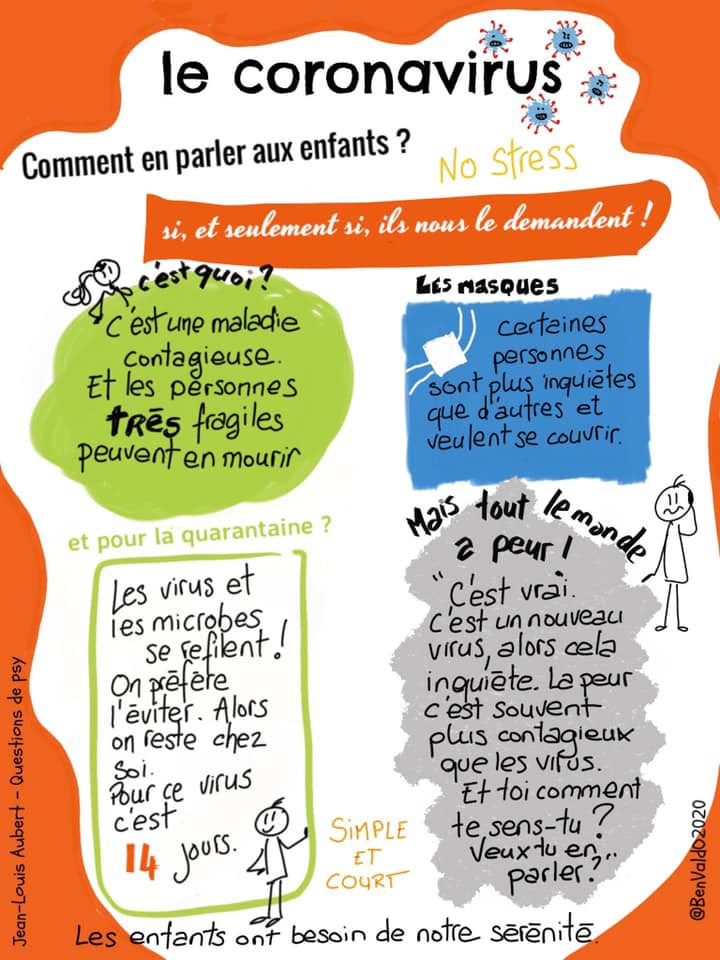 le coronavirus
Comment en parler aux enfants ?
No stress
si, et seulement si, ils nous le demandent !
c'est quoi ?
C'est une maladie
contagieuse.
Et les personnes
TRÈS fragiles
peuvent en mourir
LES MASQUES
certaines
personnes
sont plus inquiètes
que d'autres et
veulent se couvrir.
et pour la quarantaine ?
Les virus et
les microbes
se refilent !
On préfère
l'éviter. Alors
on reste chez
soi.
Pour ce virus
c'est
14 jours.
Mais tout le monde
a peur !
"C'est vrai.
c'est un nouveau
virus, alors cela
inquiète. La peur
c'est souvent
plus contagieux
que les virus.
Et toi comment
te sens-tu ?
Veux-tu en
parler ?"
SIMPLE
ET
COURT
Les enfants ont besoin de notre sérénité.
Jean-Louis Aubert - Questions de psy
@BenValdO2020